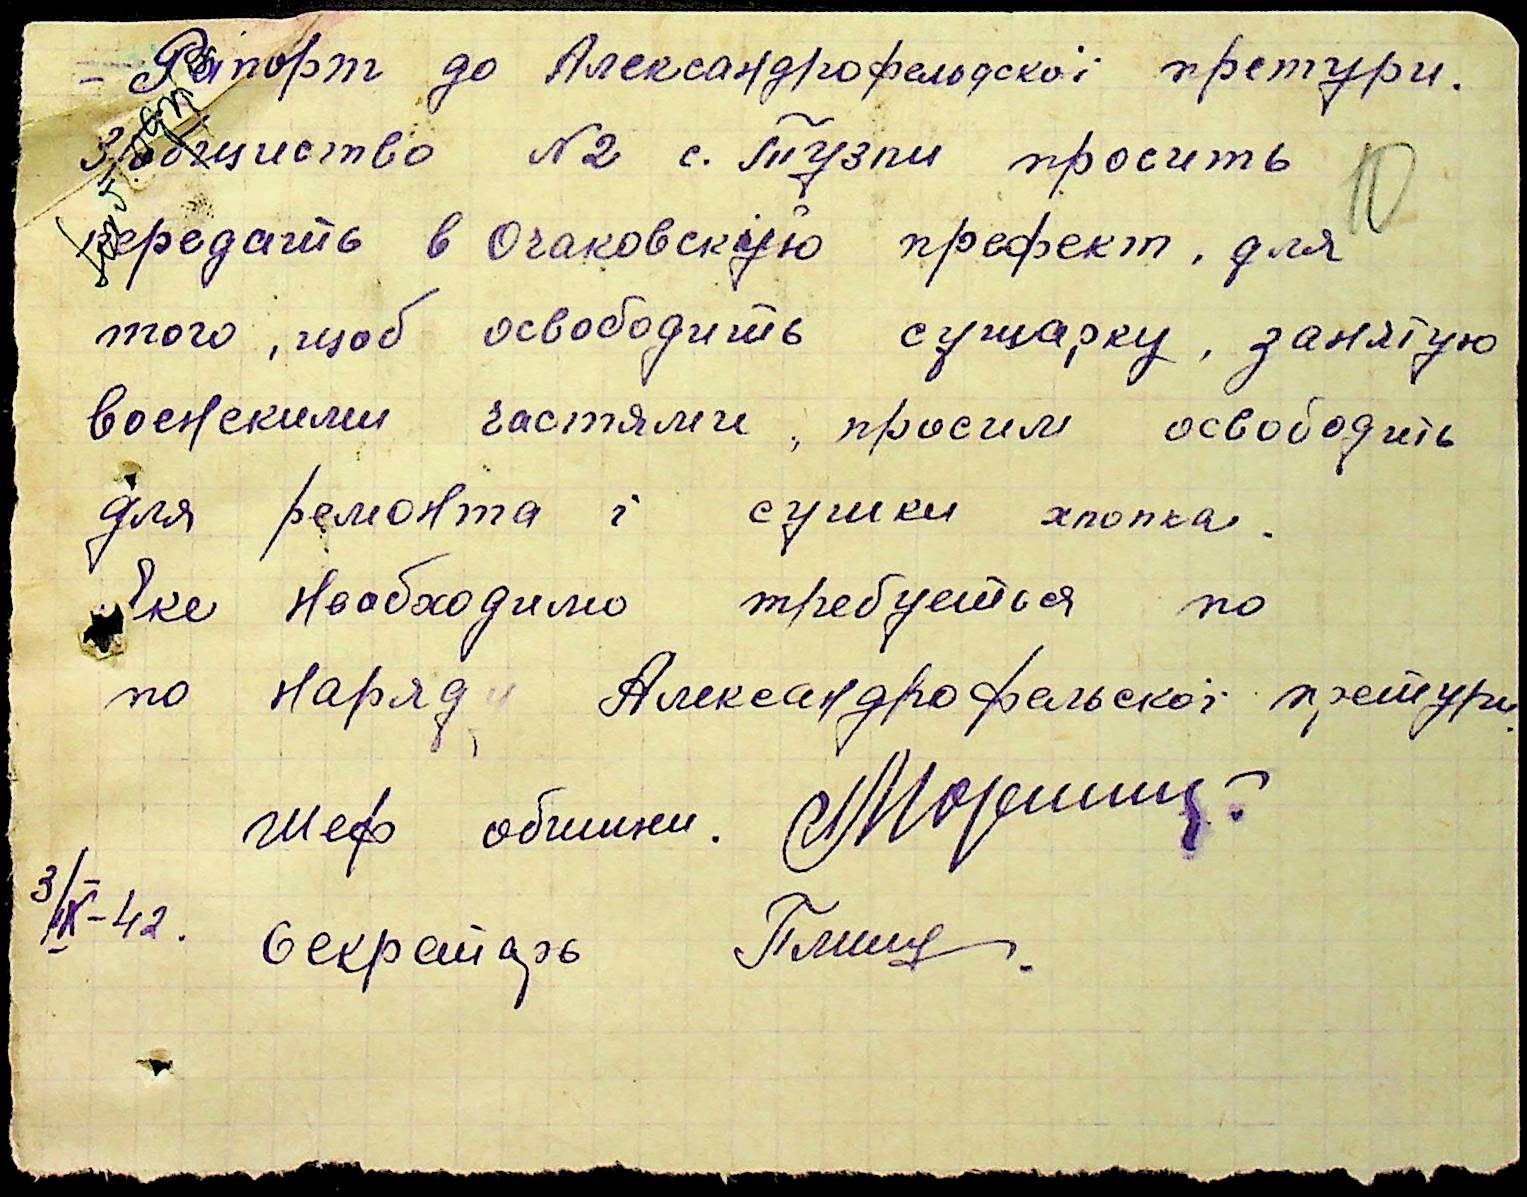 - Рапорт до Александрофельдскоі претури.
З/общиство N2 с. Тузли просить
10
передать в Очаковскую префект, для
того, щоб освободить сушарку, занятую
воєнскими частями, просим освободить
для ремонта і сушки хлопка.
Яке необходимо требується по
по наряду Александрофельскоі претури.
Шеф общини.
3/IX-42. Секретарь